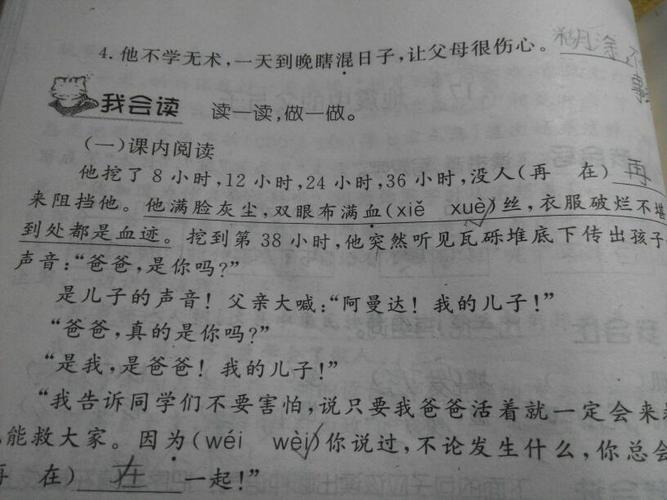 4. 他不学无术，一天到晚瞎混日子，让父母很伤心。糊涂
我会读 读一读，做一做。
(一)课内阅读
他挖了 8 小时，12 小时，24 小时，36 小时，没人(再 在) 再
来阻挡他。他满脸灰尘，双眼布满血(xiě xuè)丝，衣服破烂不堪
到处都是血迹。挖到第 38 小时，他突然听见瓦砾堆底下传出孩子
声音：“爸爸，是你吗？”
是儿子的声音！父亲大喊：“阿曼达！我的儿子！”
“爸爸，真的是你吗？”
“是我，是爸爸！我的儿子！”
“我告诉同学们不要害怕，说只要我爸爸活着就一定会来
能救大家。因为(wéi wèi)你说过，不论发生什么，你总会
再 在) 在 一起！”